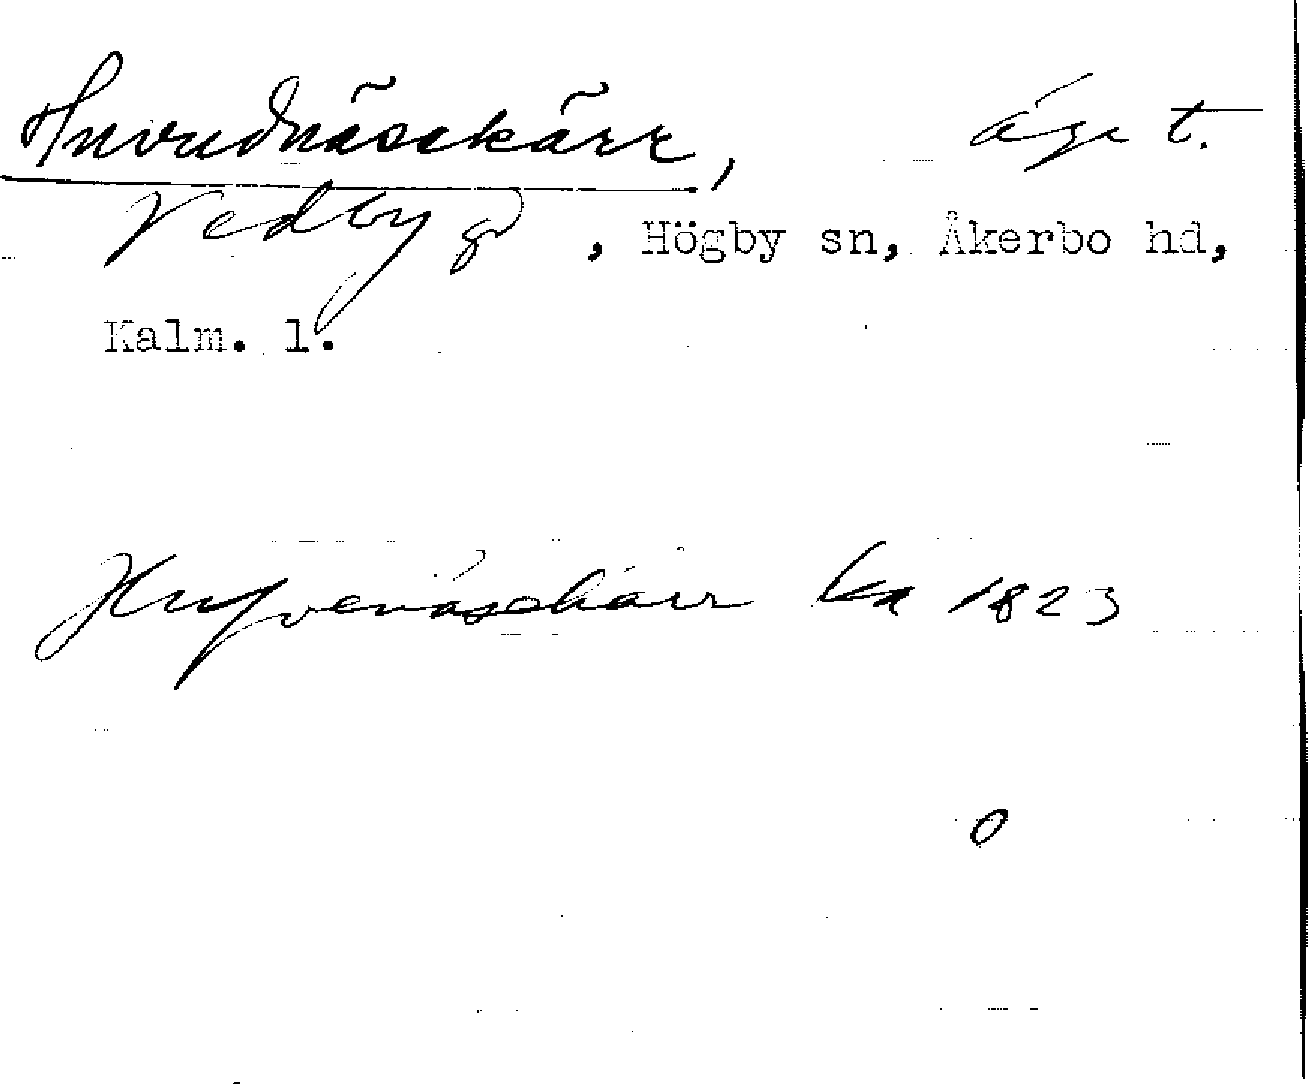 Huvudnäsekärr, äga t.
Vedby gd, Högby sn, Åkerbo hd,
Kalm. l.
Hufvenäsekärr ka 1823
o